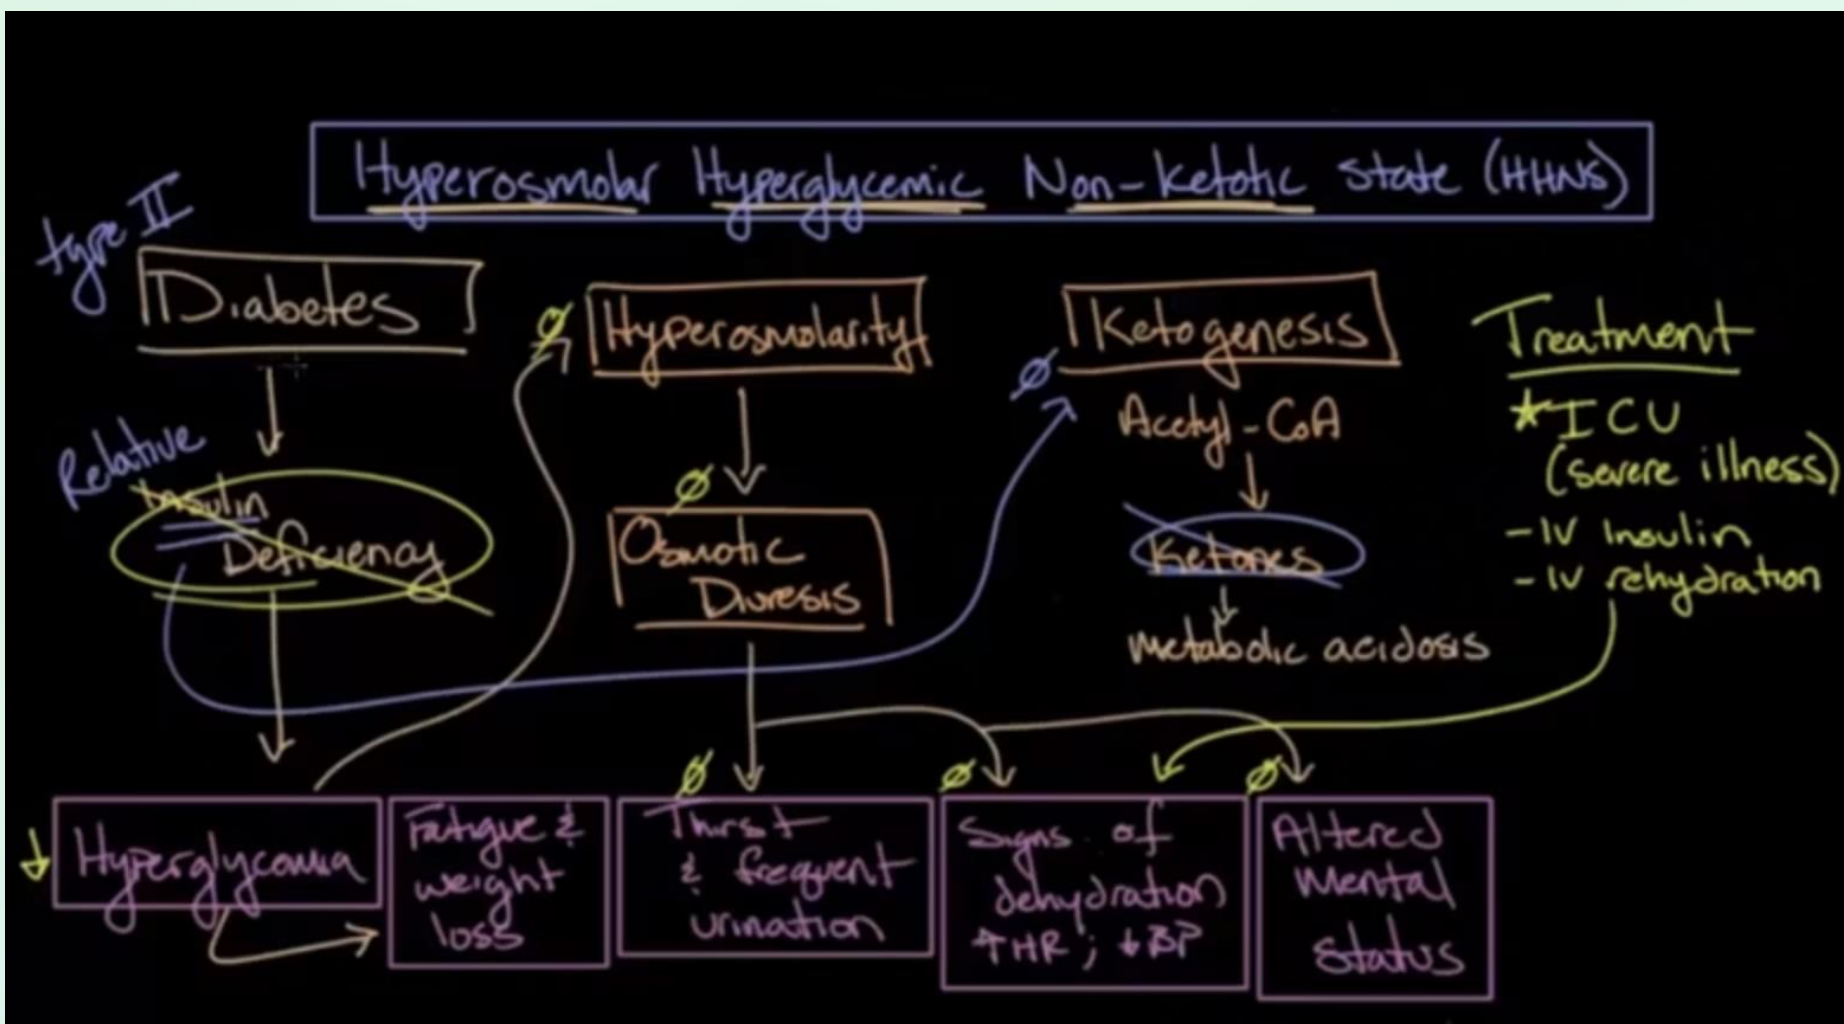 Hyperosmolar Hyperglycemic Non-Ketotic State (HHNS)
type II
Diabetes
Relative
Insulin
Deficiency
Ø
Hyperosmolarity
Ø
Osmotic
Diuresis
Ø
Ketogenesis
Acetyl-CoA
Ketones
metabolic acidosis
Treatment
★ICU
(severe illness)
-IV Insulin
-IV rehydration
↓
Hyperglycemia
Fatigue &
weight
loss
Ø
Thirst
& frequent
urination
Ø
Signs of
dehydration
↑HR; ↓BP
Ø
Altered
Mental
Status